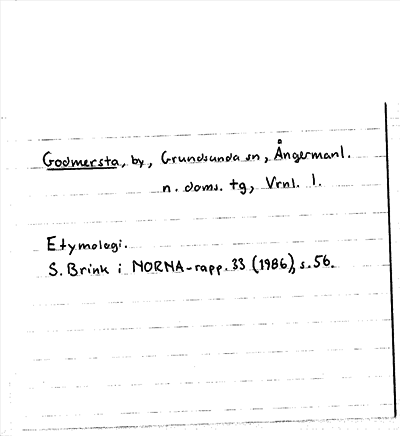 Godmersta, by, Grundsunda sn, Ångermanl.
n. doms. tg, Vrnl. l.
Etymologi.
S. Brink i NORNA-rapp. 33 (1986), s. 56.